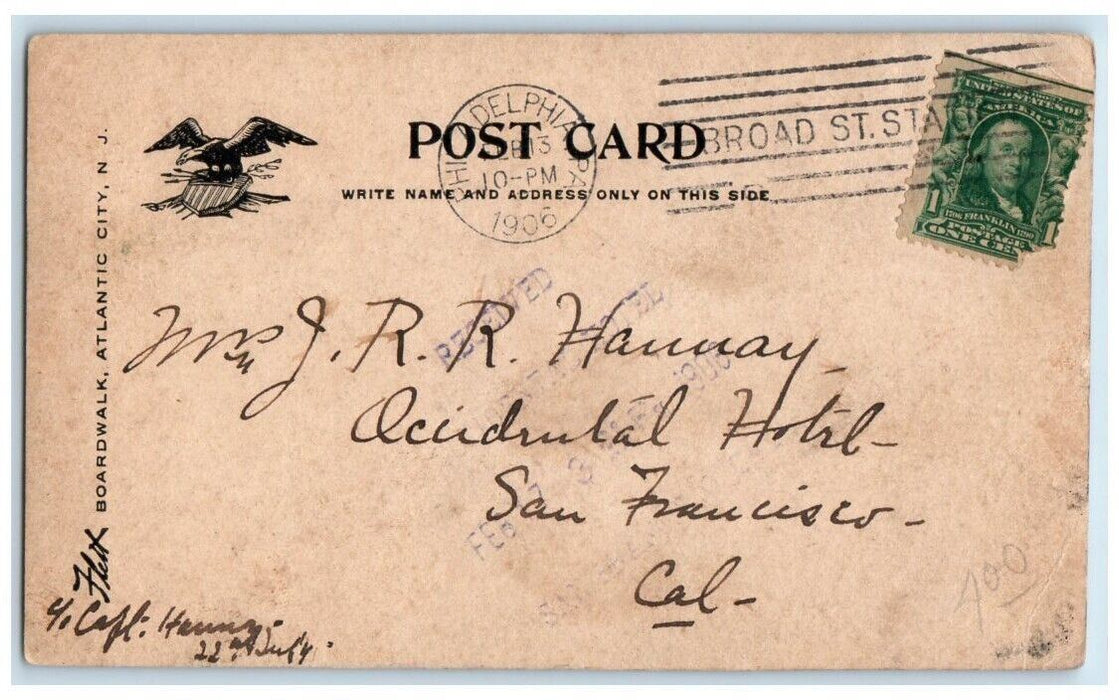 POST CARD
WRITE NAME AND ADDRESS ONLY ON THIS SIDE
PHILADELPHIA, PA
FEB 13
10-PM
1906
BROAD ST. STA.
UNITED STATES OF AMERICA
1 1706 FRANKLIN 1790 1
POSTAGE
ONE CE
RECEIVED
Mrs J. R. R. Hannay
Occidental Hotel-
San Francisco-
Cal-
FEB
1906
BOARDWALK, ATLANTIC CITY, N. J.
c/o Capt. Hannay-
22nd Inf'y.
400